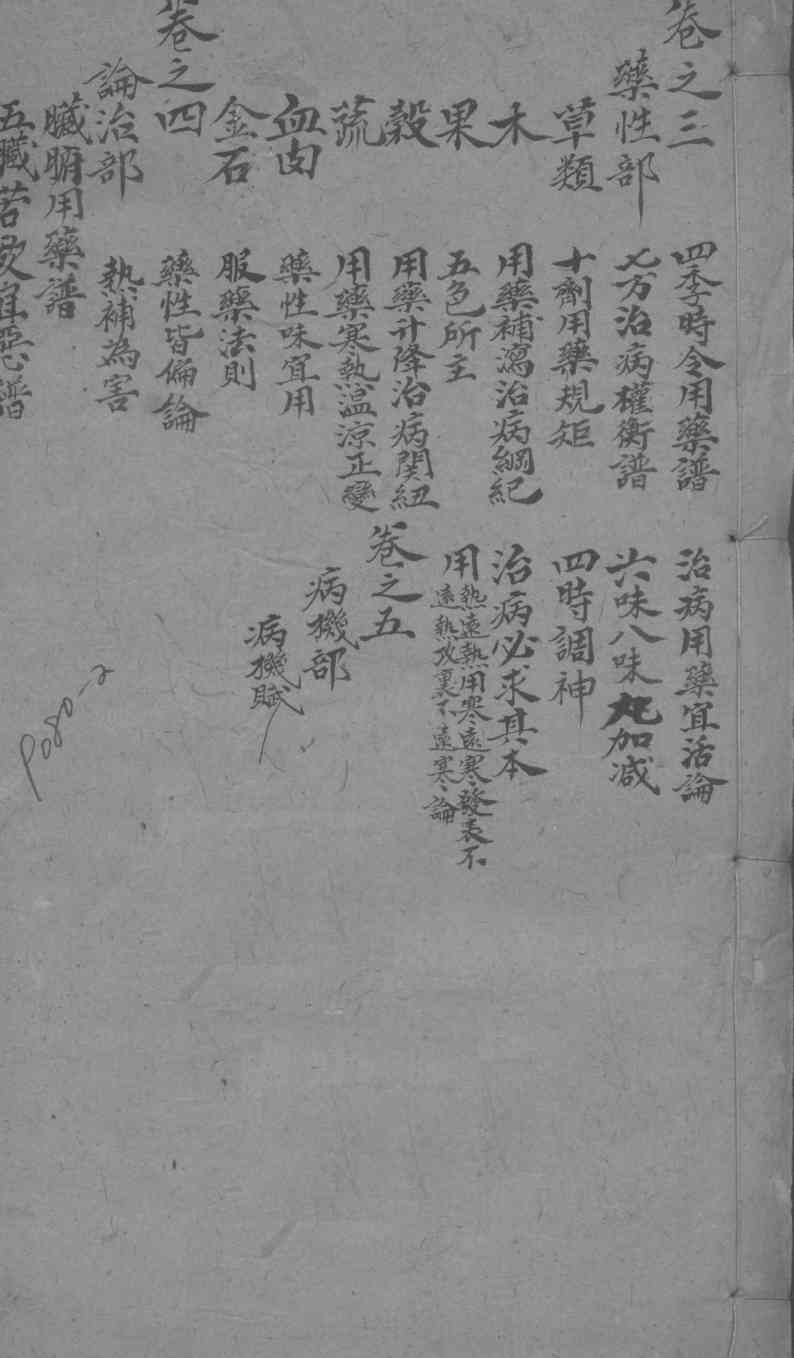 卷之三
藥性部
草類
木
果
穀
蔬
血肉
金石
卷之四
論治部
臟腑用藥譜
五臟苦欲宜惡譜
四季時令用藥譜
七方治病權衡譜
十劑用藥規矩
用藥補瀉治病綱紀
五色所主
用藥升降治病関紐
用藥寒熱温凉正變
藥性味宜用
服藥法則
藥性皆偏論
熱補為害
治病用藥宜活論
六味八味丸加减
四時調神
治病必求其本
用熱遠熱用寒遠寒發表不
遠熱攻裏不遠寒論
卷之五
病機部
病機賦
P080-2